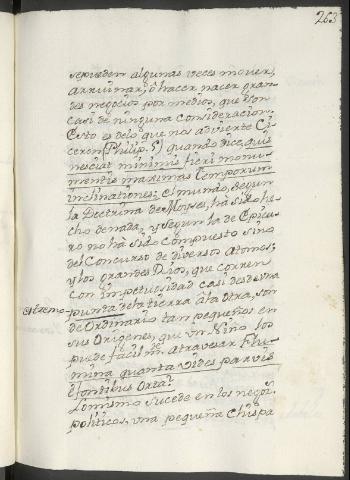 263
se pueden algunas veces mover,
arruinar, ô hacer nacer gran-
des negocios por medios, que son
casi de ninguna consideracion.
Esto es delo que nos advierte Ci-
ceron (Philip. 5) quando dice, quis
nesciat minimis fieri monu-
mentis maximas temporum
inclinationes; el mundo, segun
la Doctrina de Moyses, hà sido he-
cho de nada, y segun la de Epicu-
ro no hà sido compuesto sino
del concurso de diversos atomos;
y los grandes Rios, que corren
con impetuosidad casi desde una
extremo-
punta dela tierra âla otra, son
de Ordinario tan pequeños en
sus Origenes, que un Niño los
puede facilm.te atravesar Flu-
mina quanta vides parvis
è fontibus Orta?
Lo mismo sucede en los negoš.
politicos, una pequeña chispa